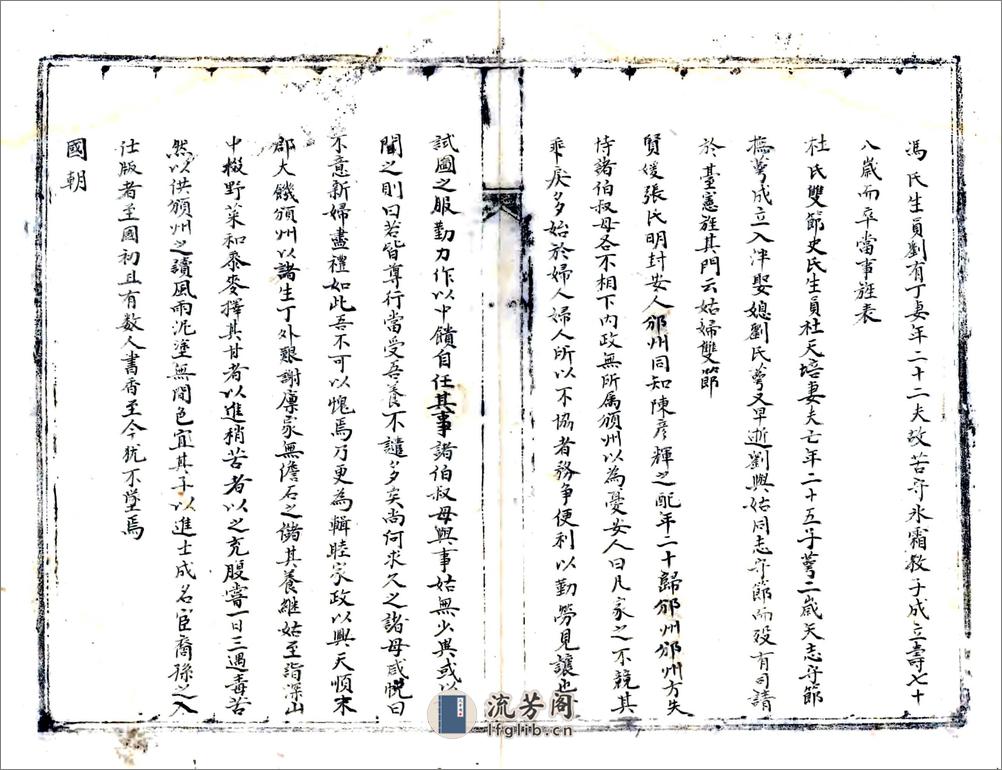 馮氏生員劉有丁妻年二十二夫故苦守氷霜教子成立壽七十
八歲而卒當事旌表
杜氏雙節史氏生員杜天培妻夫亡年二十五子萼二歲矢志守節
撫萼成立入泮娶媳劉氏萼又早逝劉與姑同志守節而歿有司請
於臺憲旌其門云姑婦雙節
賢媛張氏明封安人邠州同知陳彦輝之配年二十歸邠州邠州方失
恃諸伯叔母各不相下内政無所属頒州以為憂安人曰凡家之不競其
乖戾多始於婦人婦人所以不協者務争便利以勤勞見讓也
試圖之服勤力作以中饋自任其事諸伯叔母與事姑無少異或以
聞之則曰若皆尊行當受吾養不讉多矣尚何求久之諸母咸悦曰
不意新婦盡禮如此吾不可以愧焉乃更為輯睦家政以興天順末
郡大饑頒州以諸生丁外艱謝廩家無儋石之儲其養継姑至詣深山
中掇野菜和黍麥擇其甘者以進稍苦者以之充腹嘗一日三遇毒苦
然以洪頒州之讀風雨泥塗無間色宜其子以進士成名臣裔孫之入
仕版者至國初且有数人書香至今犹不墜焉
國朝
流芳阁
lfglib.cn